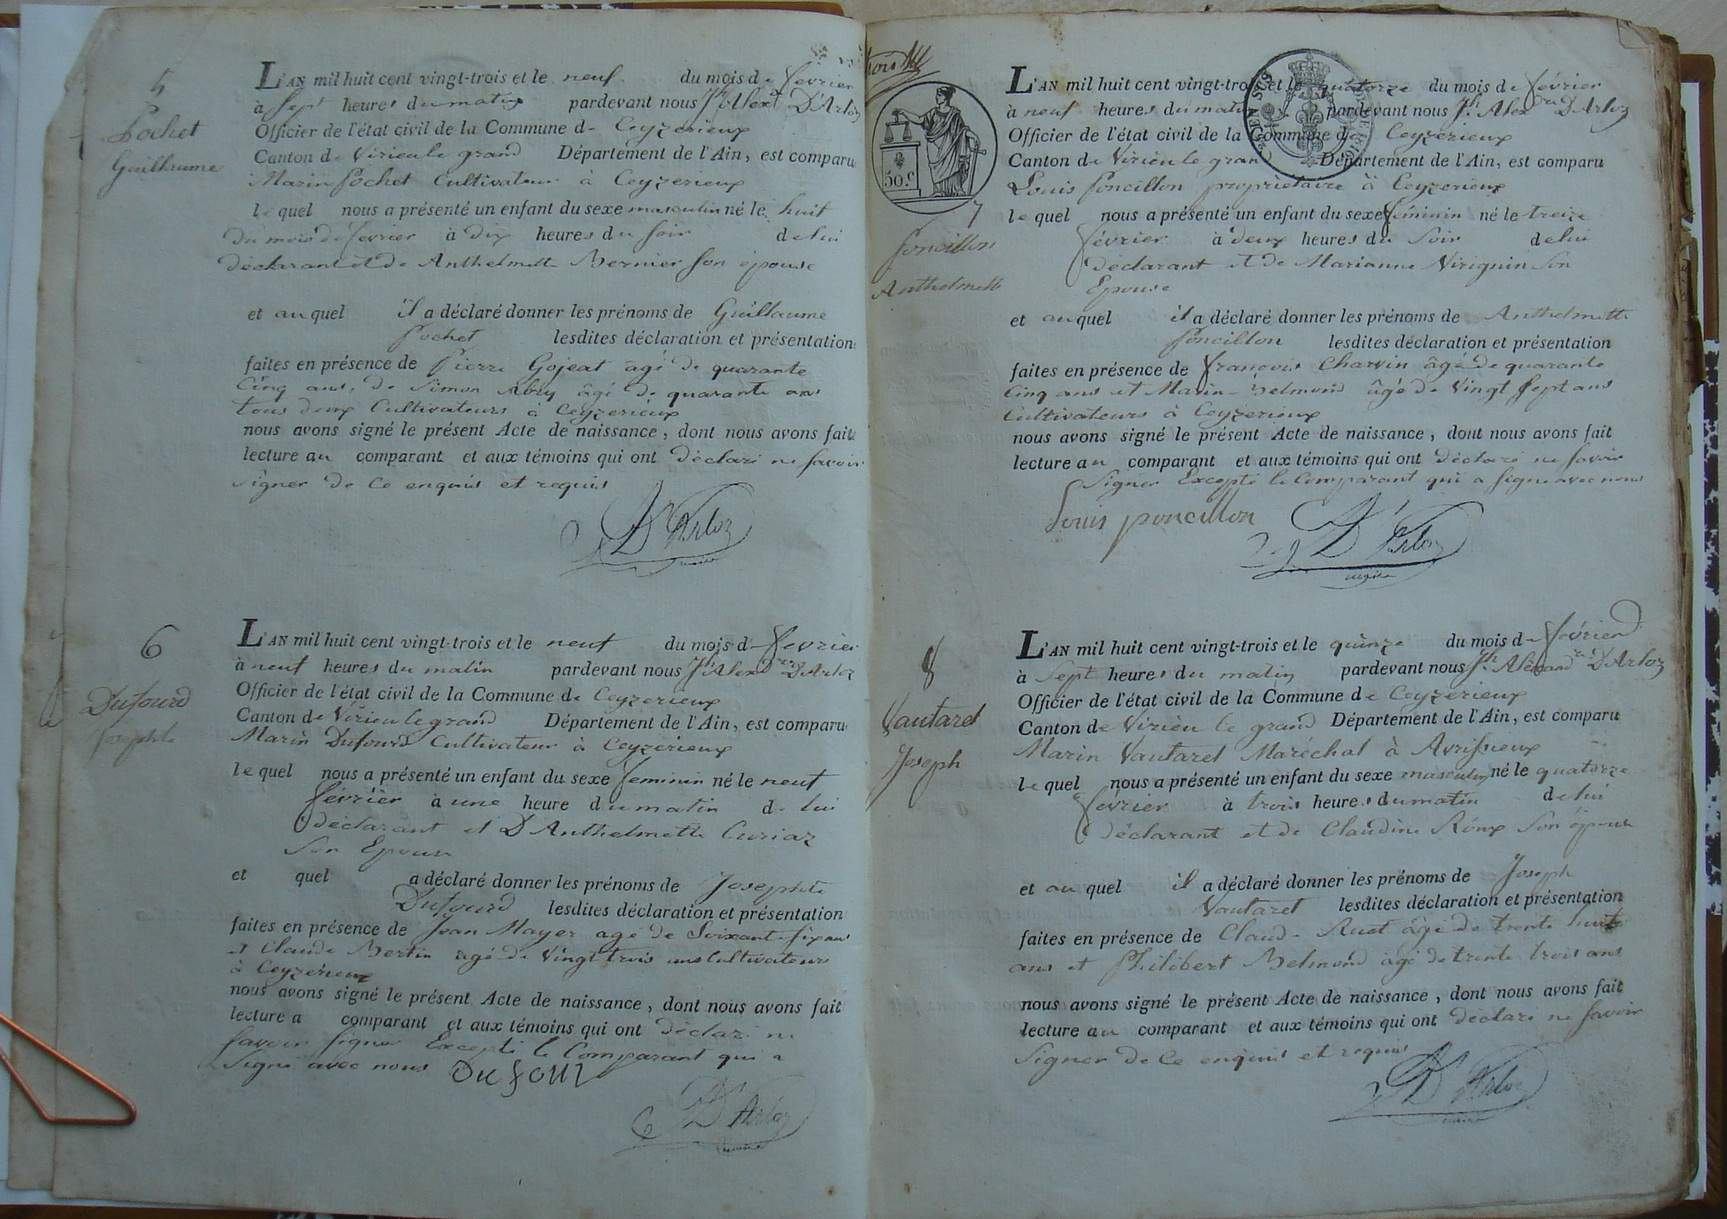 5
Pochet
Guillaume
L'AN mil huit cent vingt-trois et le neuf du mois de fevrier
à sept heures du matin pardevant nous Jh Alexdre D'Arloz
Officier de l'état civil de la Commune de Ceyzerieux
Canton de Virieu le grand Département de l'Ain, est comparu
Marin Pochet Cultivateur à Ceyzerieux
lequel nous a présenté un enfant du sexe masculin né le huit
du mois de fevrier à dix heures du soir de lui
déclarant et de Anthelmette Bernier son epouse
et au quel il a déclaré donner les prénoms de Guillaume
Pochet lesdites déclaration et présentation
faites en présence de Pierre Gojeat âgé de quarante
Cinq ans, de Simon Abry âgé de quarante ans
tous deux Cultivateurs à Ceyzerieux
nous avons signé le présent Acte de naissance, dont nous avons fait
lecture au comparant et aux témoins qui ont déclaré ne savoir
signer de ce enquis et requis
D'Arloz
maire
6
Dufourd
Josephte
L'AN mil huit cent vingt-trois et le neuf du mois de fevrier
à neuf heures du matin pardevant nous Jh Alexdre D'Arloz
Officier de l'état civil de la Commune de Ceyzerieux
Canton de Virieu le grand Département de l'Ain, est comparu
Marin Dufourd Cultivateur à Ceyzerieux
lequel nous a présenté un enfant du sexe feminin né le neuf
février à une heure du matin de lui
déclarant et D'Anthelmette Curiaz
son Epouse
et quel a déclaré donner les prénoms de Josephte
Dufourd lesdites déclaration et présentation
faites en présence de Jean Mayer age de Soixante six ans
et Claude Bertin âgé de Vingt trois ans Cultivateurs
à Ceyzerieux
nous avons signé le présent Acte de naissance, dont nous avons fait
lecture a comparant et aux témoins qui ont déclaré ne
savoir signer Excepté le Comparant qui a
signé avec nous Dufour
D'Arloz
maire
50 c
7
Poncillon
Anthelmette
L'AN mil huit cent vingt-trois et le quatorze du mois de février
à neuf heures du matin pardevant nous Jh Alexdre D'Arloz
Officier de l'état civil de la Commune de Ceyzerieux
Canton de Virieu le grand Département de l'Ain, est comparu
Louis Poncillon propriétaire à Ceyzerieux
lequel nous a présenté un enfant du sexe feminin né le treize
février à deux heures du soir de lui
déclarant et de Marianne Virignin son
Epouse
et au quel il a déclaré donner les prénoms de Anthelmette
Poncillon lesdites déclaration et présentation
faites en présence de françois Charvin âgé de quarante
Cinq ans et Marin Belmond âgé de Vingt sept ans
Cultivateurs à Ceyzerieux
nous avons signé le présent Acte de naissance, dont nous avons fait
lecture au comparant et aux témoins qui ont déclaré ne savoir
signer Excepté le Comparant qui a signé avec nous
Louis poncillon D'Arloz
maire
8
Vautaret
Joseph
L'AN mil huit cent vingt-trois et le quinze du mois de février
à Sept heures du matin pardevant nous Jh Alexandre D'Arloz
Officier de l'état civil de la Commune de Ceyzerieux
Canton de Virieu le grand Département de l'Ain, est comparu
Marin Vautaret Maréchal à Avrissieux
lequel nous a présenté un enfant du sexe masculin né le quatorze
février à trois heures du matin de lui
déclarant et de Claudine Roux son épouse
et au quel il a déclaré donner les prénoms de Joseph
Vautaret lesdites déclaration et présentation
faites en présence de Claude Ruet âgé de trente huit
ans et Philibert Belmond âgé de trente trois ans
nous avons signé le présent Acte de naissance, dont nous avons fait
lecture au comparant et aux témoins qui ont déclaré ne savoir
signer de ce enquis et requis
D'Arloz
maire